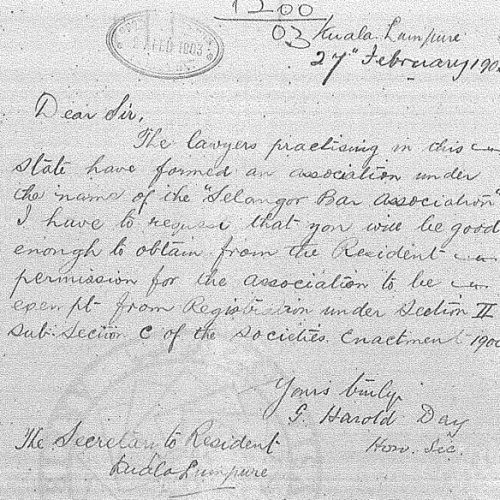 1200
03
Kuala Lumpure
27" February, 190
FEB 1903
Dear Sir,
The lawyers practising in this
State have formed an association under
the name of the "Selangor Bar Association"
I have to request that you will be good
enough to obtain from the Resident
permission for the association to be
exempt from Registration under Section II
Sub: Section C of the Societies. Enactment 190
Yours truly
G. Harold Day
Hon. Sec.
The Secretary to Resident
Kuala Lumpure